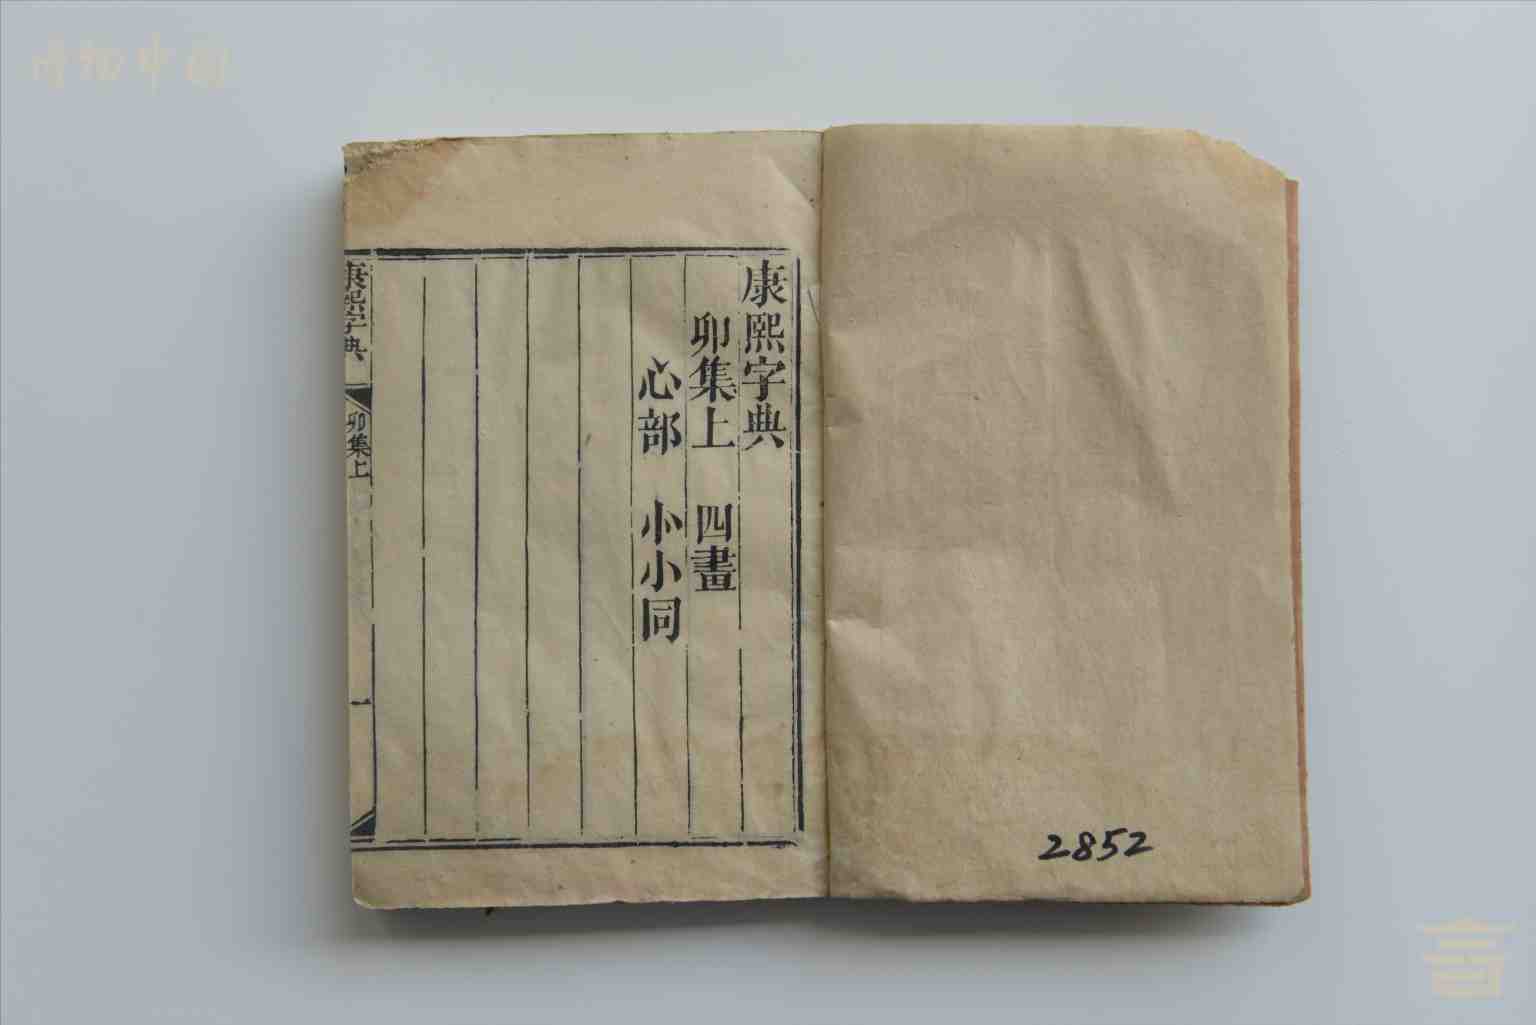 康熙字典
卯集上　四畫
心部　㣺小同
康熙字典
卯集上
一
2852
博物中国